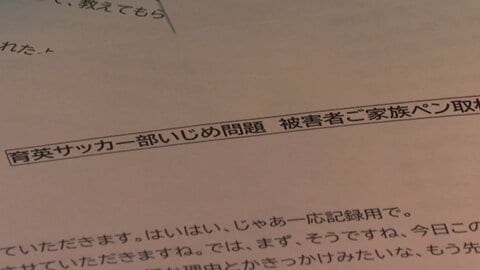 て、教えてもら
れた
育英サッカー部いじめ問題 被害者ご家族ペン取材
ていただきます。はいはい、じゃあ一応記録用で。
させていただきますね。では、まず、そうですね、今日この
理由とかきっかけみたいな、もう先